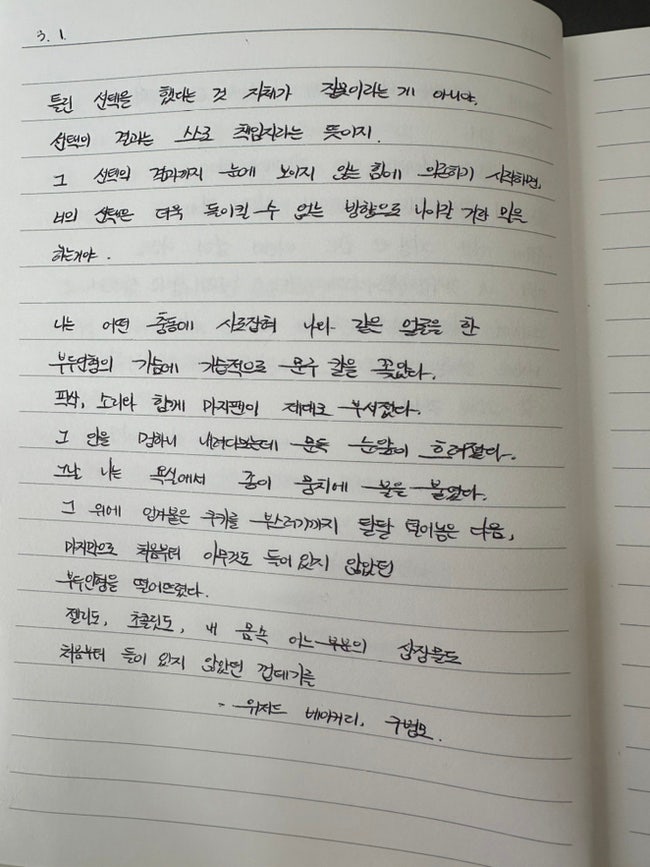 3. 1.
틀린 선택을 했다는 것 자체가 잘못이라는 게 아니야.
선택의 결과는 스스로 책임지라는 뜻이지.
그 선택의 결과까지 눈에 보이지 않는 힘에 의존하기 시작하면,
너의 선택은 더욱 돌이킬 수 없는 방향으로 나아갈 거란 말을
하는거야.
나는 어떤 충동에 사로잡혀 나와 같은 얼굴을 한
부두인형의 가슴에 기습적으로 문구 칼을 꽂았다.
파싹, 소리와 함께 마지팬이 제대로 부서졌다.
그 안을 멍하니 내려다보는데 문득 눈앞이 흐려졌다.
그날 나는 욕실에서 종이 뭉치에 불을 붙였다.
그 위에 엉겨붙은 쿠키를 부스러기까지 탈탈 털어넣은 다음,
마지막으로 처음부터 아무것도 들어 있지 않았던
부두인형을 떨어뜨렸다.
젤리도, 초콜릿도, 내 몸속 어느 부분의 상징물도
처음부터 들어 있지 않았던 껍데기를
- 위저드 베이커리, 구병모.